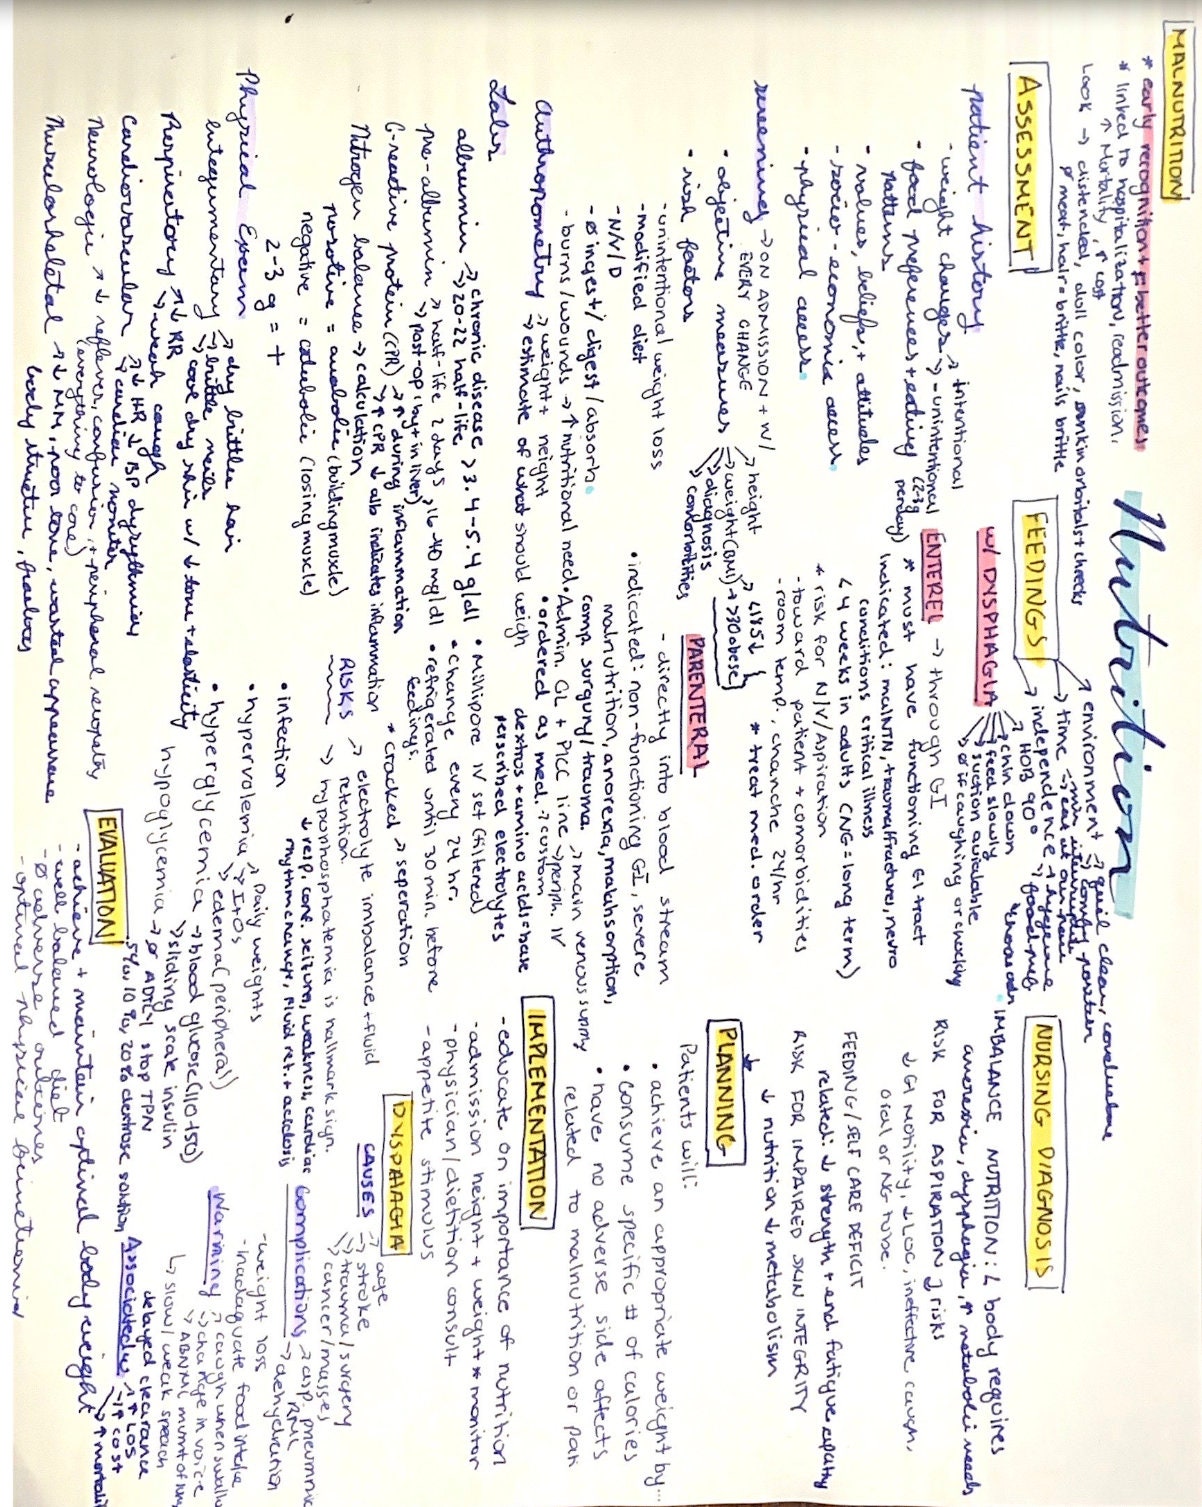 Nutrition
MALNUTRITION
* early recognition = better outcomes
* linked to hospitalization, readmission,
↑ Mortality, ↑ cost
Look → distended, dull color, sunkin orbitals + cheeks
Ø meat, hair = brittle, nails brittle
ASSESSMENT
patient history
- weight changes → intentional
→ unintentional
(2-3g per day)
• food preferences + eating
patterns
• values, beliefs, + attitudes
- socio-economic access
• physical access
screening → ON ADMISSION + W/
EVERY CHANGE
• objective measures → height
→ weight (BMI) → > 30 obese
→ < 18.5 ↓
→ diagnosis
→ comorbidities
* treat med. order
• risk factors
- unintentional weight loss
- modified diet
- N/V/D
- Ø ingest / digest / absorb
- burns / wounds → ↑ nutritional need
Anthropometry → weight + height
→ estimate of what should weigh
Labs
albumin → chronic disease, 3.4-5.4 g/dl
→ 20-22 half-life
Pre-albumin → half-life 2 days, 16-40 mg/dl
→ post-op (by + in liver)
C-reactive protein (CPR) → ↑ during inflammation
→ ↑ CPR ↓ alb indicates inflammation
Nitrogen balance → calculation
positive = anabolic (building muscle)
negative = catabolic (losing muscle)
2-3 g = +
Physical Exam
Integumentary → dry brittle hair
→ brittle nails
→ cool dry skin w/ ↓ tone + elasticity
Respiratory → ↓ RR
→ weak cough
Cardiovascular → ↓ HR ↓ BP dysrythmias
→ cardiac moniter
Neurologic → ↓ reflexes, confusion, + peripheral neuropathy
(everything to core)
Muscularskeletal → ↓ MM, poor tone, wasted appearence
body structure, fracture
FEEDINGS
→ environment → quiet, clean, comfortable
→ time → eat at own pace
→ independence → hygiene
→ food prefs
w/ DYSPHAGIA → HOB 90°
→ chin down
→ feed slowly
→ suction available
→ Ø if coughing or choking
ENTEREL → through GI
* must have functioning GI tract
Indicated: malNTN, trauma/fractures, neuro
conditions critical illness
< 4 weeks in adults (NG = long term)
* risk for N/V/Aspiration
- toward patient + comorbidities
- room temp., chanche 24/hr
PARENTERAL
- directly into blood stream
• indicated: non-functioning GI, severe
malnutrition, anorexia, malabsorption,
comp. surgury / trauma.
• Admin. CL + PICC line → main venous supply
→ periph. IV
• ordered as med. → custom
dextros + amino acids = base
perscribed electrolytes
• Millipore IV set (filtered)
• change every 24 hr.
• refrigerated until 30 min. before
feedings.
* cracked → seperation
RISKS → electrolyte imbalance + fluid
retention.
→ hypophosphatemia is hallmark sign.
↓ resp. cond. seizure, weakness, cardiac
rhythm change, fluid ret. + acidosis
• infection
• hypervolemia → Daily weights
→ I + Os
→ edema (peripheral)
• hyperglycemia → blood glucose (110-150)
→ sliding scale insulin
hypoglycemia → Ø ABTLY stop TPN
5% or 10%, 20% dextrose solution
EVALUATION
- achieve + maintain optimal body weight
- well balanced diet
- Ø adverse outcomes
- optimal physical functioning
NURSING DIAGNOSIS
• IMBALANCE NUTRITION: < body requires
anorexia, dysphagia, ↑ metabolic needs
RISK FOR ASPIRATION } risks
↓ GI motility, ↓ LOC, ineffective cough,
oral or NG tube.
FEEDING/SELF CARE DEFICIT
related: ↓ strength + end. fatigue, apathy
RISK FOR IMPAIRED SKIN INTEGRITY
↓ nutrition ↓ metabolism
PLANNING
Patients will:
• achieve an appropriate weight by...
• consume specific # of calories
• have no adverse side affects
related to malnutrition or
IMPLEMENTATION
- educate on importance of nutrition
- admission height + weight * monitor
- physician/dietition consult
- appetite stimulus
DYSPHAGIA
CAUSES → age
→ stroke
→ trauma/surgery
→ cancer/masses
Complications → asp. pneumonia
→ dehydration
- weight loss
- inadaquate food intake
Warning → cough when swallow
→ change in voice
→ ABNML mvmt of
↳ slow/weak speach
delayed clearance
Associated w/ → ↑ LOS
→ ↑ cost
→ ↑ mortali